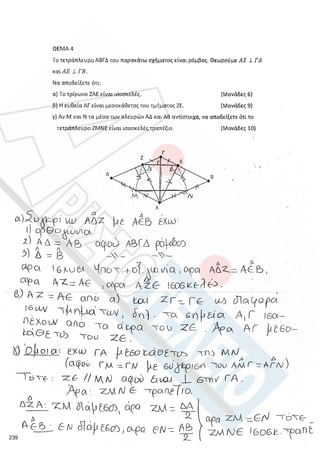 ΘΕΜΑ 4
Το τετράπλευρο ΑΒΓΔ του παρακάτω σχήματος είναι ρόμβος. Θεωρούμε ΑΖ ⊥ ΓΔ
και ΑΕ ⊥ ΓΒ.
Να αποδείξετε ότι:
α) Το τρίγωνο ΖΑΕ είναι ισοσκελές. (Μονάδες 6)
β) Η ευθεία ΑΓ είναι μεσοκάθετος του τμήματος ΖΕ. (Μονάδες 9)
γ) Αν Μ και Ν τα μέσα των πλευρών ΑΔ και ΑΒ αντίστοιχα, να αποδείξετε ότι το
τετράπλευρο ΖΜΝΕ είναι ισοσκελές τραπέζιο. (Μονάδες 10)
Γ
Ζ Ε
Δ Β
Μ Ν
Α
α) Συγκρίνω ΑΔΖ με ΑΕΒ έχω:
1) ορθογώνια
2) ΑΔ = ΑΒ αφού ΑΒΓΔ ρόμβος
3) Δ̂ = Β̂
άρα ισχύει Υποτ.+οξ. γωνία, άρα ΑΔΖ = ΑΕΒ,
άρα ΑΖ = ΑΕ, άρα ΑΖΕ ισοσκελές.
β) ΑΖ = ΑΕ από α) και ΖΓ = ΓΕ ως διαφορά
ίσων τμημάτων, δηλ. τα σημεία Α, Γ ισα-
πέχουν από τα άκρα του ΖΕ. Άρα ΑΓ μεσο-
κάθετος του ΖΕ.
γ) Όμοια: έχω ΓΑ μεσοκάθετος της ΜΝ
(αφού ΓΜ = ΓΝ με σύγκριση του ΑΜΓ = ΑΓΝ)
Τότε: ΖΕ // ΜΝ αφού είναι ⊥ στην ΓΑ.
Άρα: ΖΜΝΕ τραπέζιο.
ΔΖΑ: ΖΜ διάμεσος, άρα ΖΜ = ΔΑ/2
ΑΕΒ: ΕΝ διάμεσος, άρα ΕΝ = ΑΒ/2
άρα ΖΜ = ΕΝ τότε
ΖΜΝΕ ισοσκ. τραπέζ
239